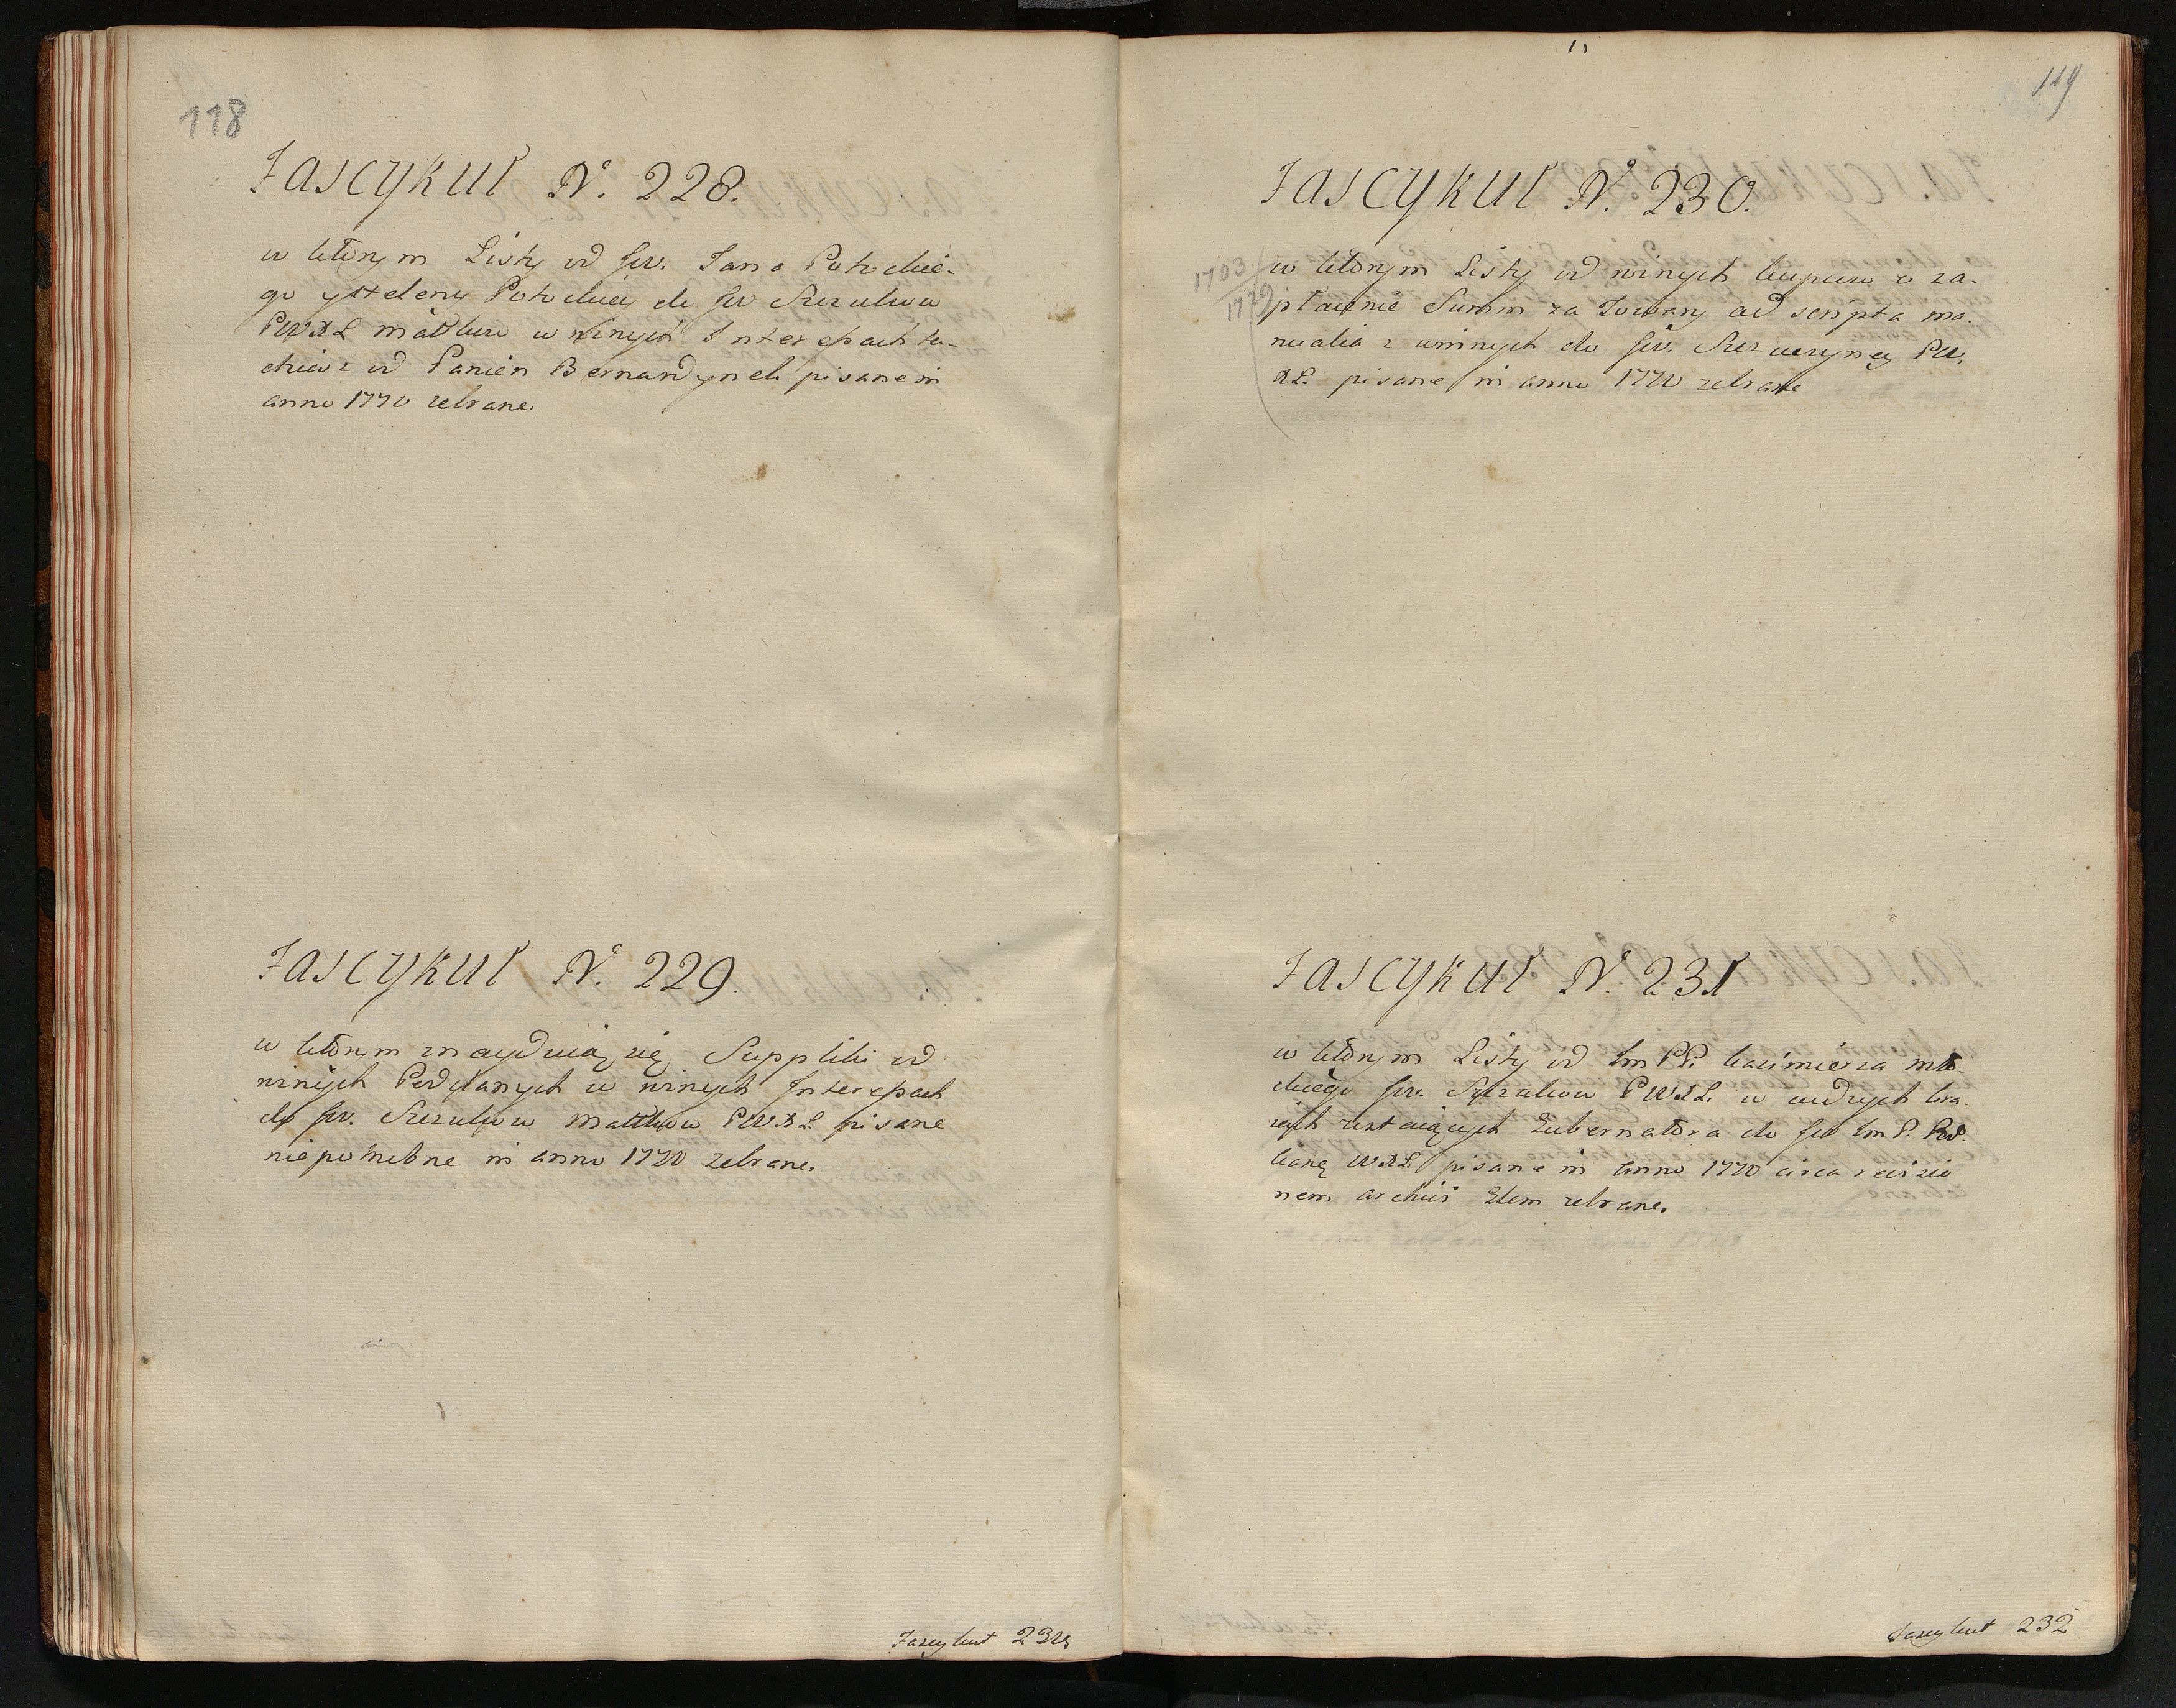 118
Fascykuł N. 228.
w ktorym Listy od Jw. Jana Potockie-
go y Heleny Potockiey do Jw
PWXL w rożnych Interessach ta-
kież od Panien Bernardynek pisane in
anno 1770 zebrane.
Fascykuł N. 229.
w ktorym znayduią się Suppliki od
rożnych Poddanych w rożnych Interessach
do Jw. PWXL pisane
niepotrzebne in anno 1770 zebrane.
Fascykuł 230
119
Fascykuł N. 230.
1703
1729
w ktorym Listy od rożnych kupcow o za-
płacenie Summ za Towary ad scripta ma-
nualia z do Jw. PW
XL. pisane in anno 1770 zebrane
Fascykuł N. 231
w ktorym Listy od Im PP. Kazimierza
ckiego Jw. PWXL. w
Gubernatora do Jw Im P. Pod-
WXL pisane in anno 1770 circa revisio
nem archivi zebrane.
Fascykuł 232